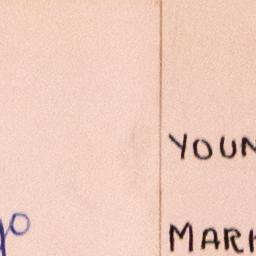 YOUN
MARK